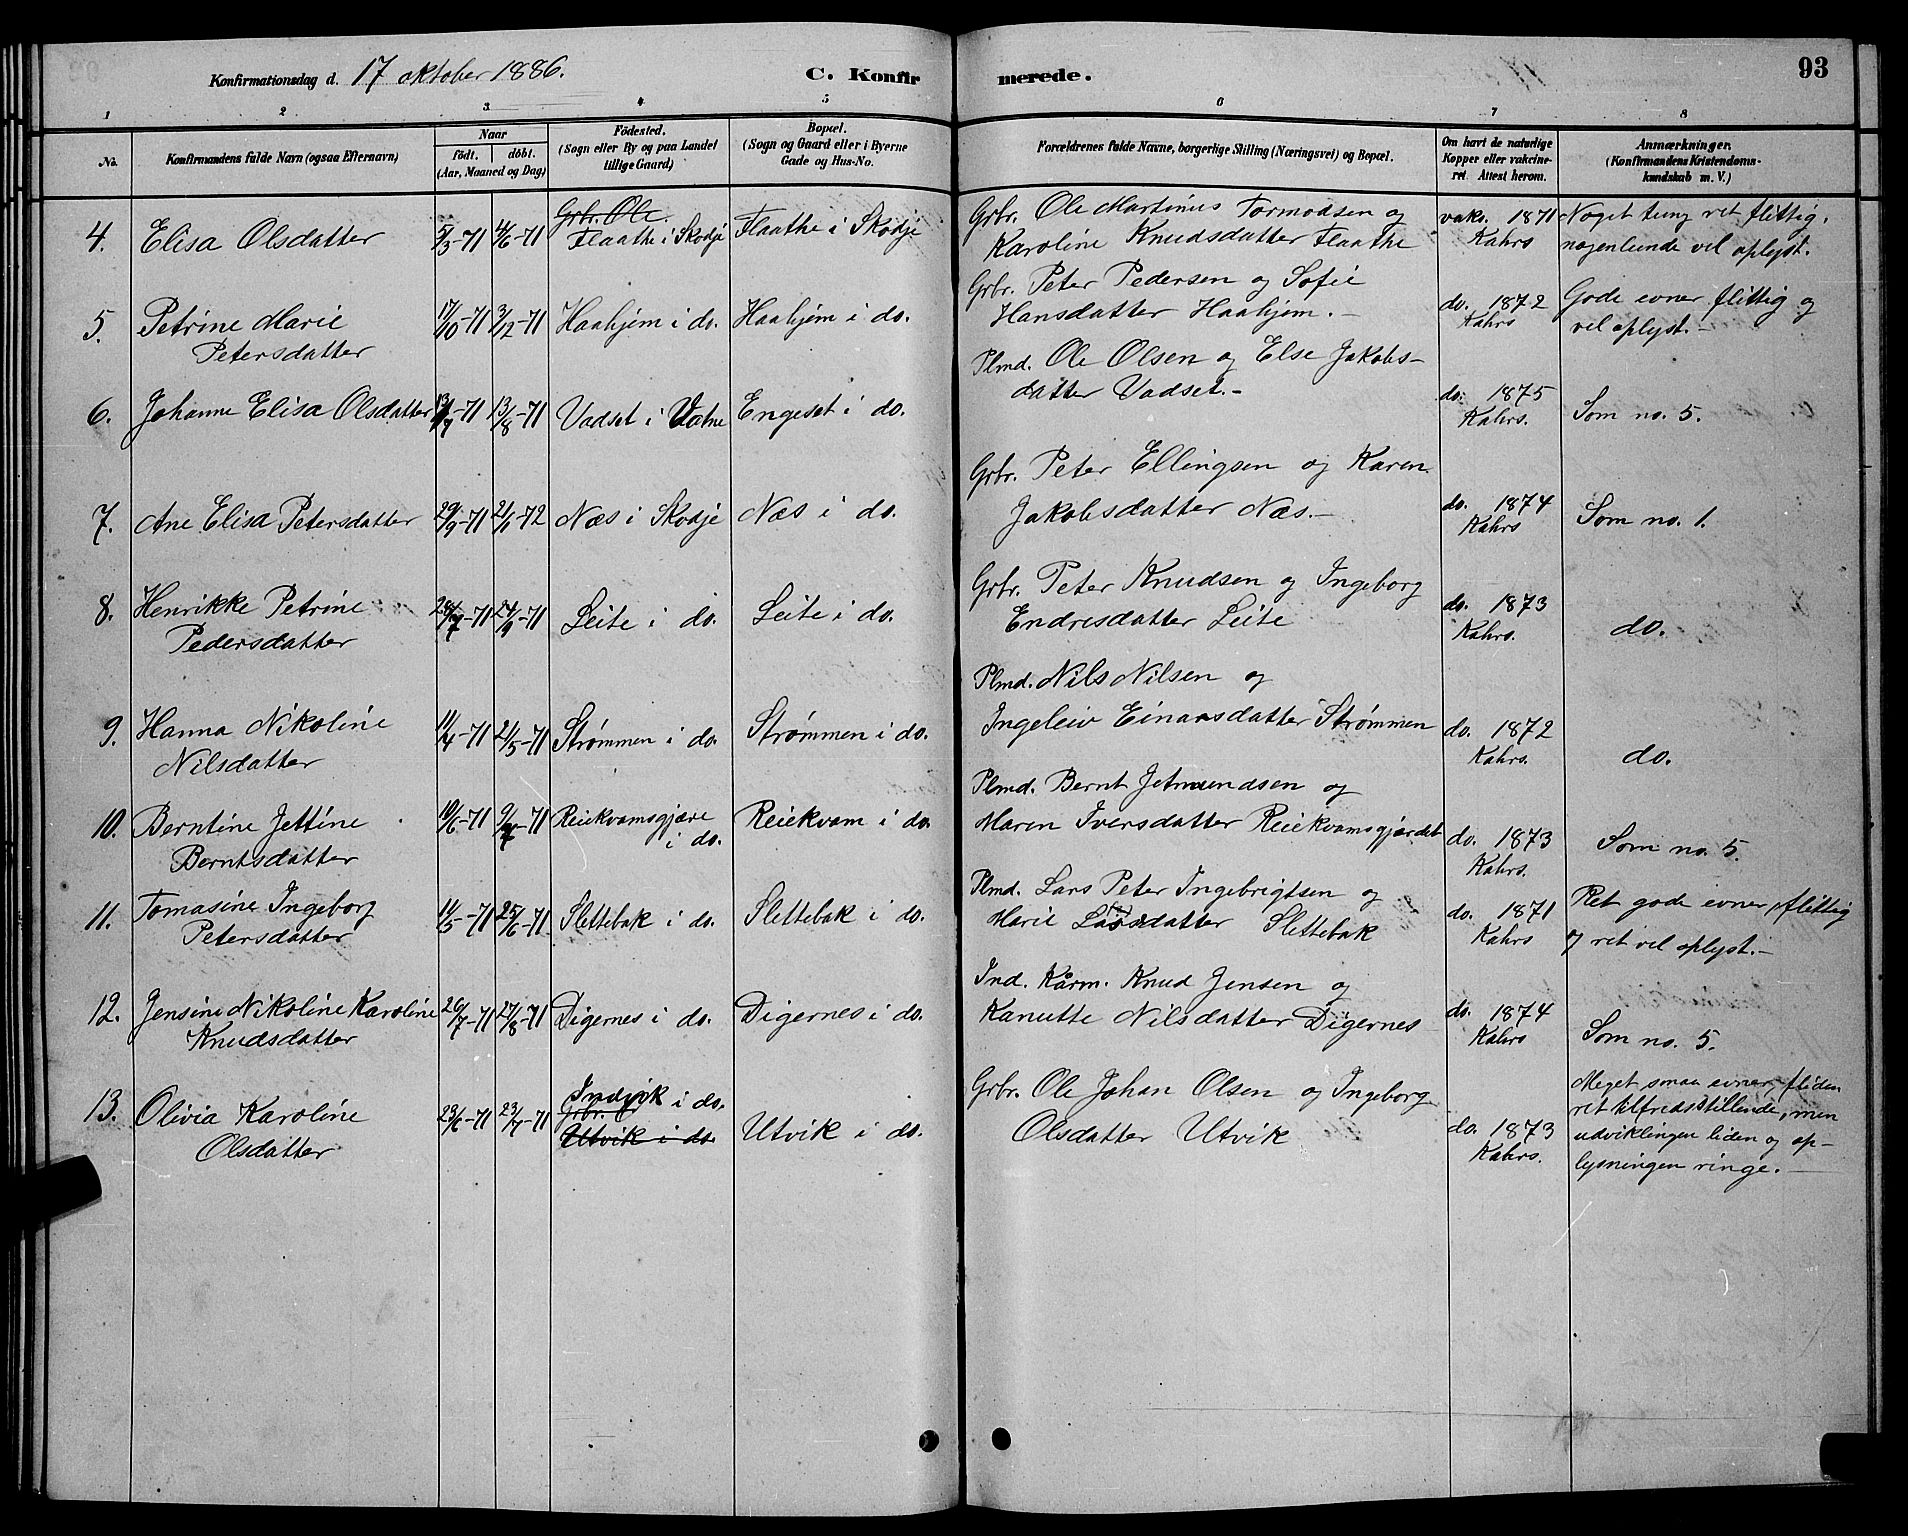 Konfirmationsdag d. 17 oktober 1886.
C. Konfirmerede.
93
1 2 3 4 5 6 7 8
No.
Konfirmandens fulde Navn (ogsaa Efternavn)
Naar
födt. döbt.
(Aar, Maaned og Dag)
Födested.
(Sogn eller By og paa Landet
tillige Gaard)
Bopæl.
(Sogn og Gaard eller i Byerne
Gade og Hus-No.
Forældrenes fulde Navne, borgerlige Stilling (Næringsvei) og Bopæl.
Om havt de naturlige
Kopper eller vakcine-
ret. Attest herom.
Anmærkninger.
(Konfirmandens Kristendoms-
kundskab m. V.)
4. Elisa Olsdatter 5/3-71 4/6-71
Grbr. Ole
Flaathe i Skodje
Flaathe i Skodje
Grbr. Ole Martinius Tormodsen og
Karoline Knudsdatter Flaathe
vaks. 1871
Kahrs
Noget tung ret flittig.
nogenlunde vel oplyst.
5. Petrine Marie
Petersdatter
17/10-71 3/12-71 Haahjem i do. Haahjem i do.
Grbr. Peter Pedersen og Sofie
Hansdatter Haahjem.-
do. 1872
Kahrs
Gode evner flittig og
vel oplyst.-
6. Johanne Elisa Olsdatter 13/7-71 13/8-71 Vadset i Vatne Engeset i do.
Plmd. Ole Olsen og Else Jakobs-
datter Vadset.-
do. 1875
Kahrs.
Som no. 5.
7. Ane Elisa Petersdatter 29/9-71 21/1-72 Næs i Skodje Næs i do.
Grbr. Peter Ellingsen og Karen
Jakobsdatter Næs.-
do. 1874
Kahrs
Som no. 1.
8. Henrikke Petrine
Pedersdatter
28/7-71 24/9-71 Leite i do. Leite i do.
Grbr. Peter Knudsen og Ingeborg
Endresdatter Leite
do. 1873
Kahrs.
do.
9. Hanna Nikoline
Nilsdatter
11/4-71 21/5-71 Strømmen i do. Strømmen i do.
Plmd. Nils Nilsen og
Ingeleiv Einarsdatter Strømmen
do. 1872
Kahrs.
do.
10. Berntine Jettine
Berntsdatter
10/6-71 9/7-71 Reiekvamsgjære
i do.
Reiekvam i do.
Plmd. Bernt Jetmundsen og
Maren Iversdatter Reiekvamsgjærdet
do. 1873
Kahrs.
Som no. 5.
11. Tomasine Ingeborg
Petersdatter
11/5-71 25/6-71 Slettebak i do. Slettebak i do.
Plmd. Lars Peter Ingebrigtsen og
Marie Lasedatter Slettebak
do. 1871
Kahrs
Ret gode evner, flittig
og ret vel oplyst.-
12. Jensine Nikoline Karoline
Knudsdatter
26/7-71 27/8-71 Digernes i do. Digernes i do.
Ind. Kårm. Knud Jensen og
Kanutte Nilsdatter Digernes
do. 1874
Kahrs
Som no. 5.
13. Olivia Karoline
Olsdatter
23/6-71 23/7-71
Indvik i do.
Grbr. O
Utvik i do.
Utvik i do.
Grbr. Ole Johan Olsen og Ingeborg
Olsdatter Utvik
do. 1873
Kahrs.
Meget smaa evner, fliden
ret tilfredsstillende, men
udviklingen liden og op-
lysningen ringe.-